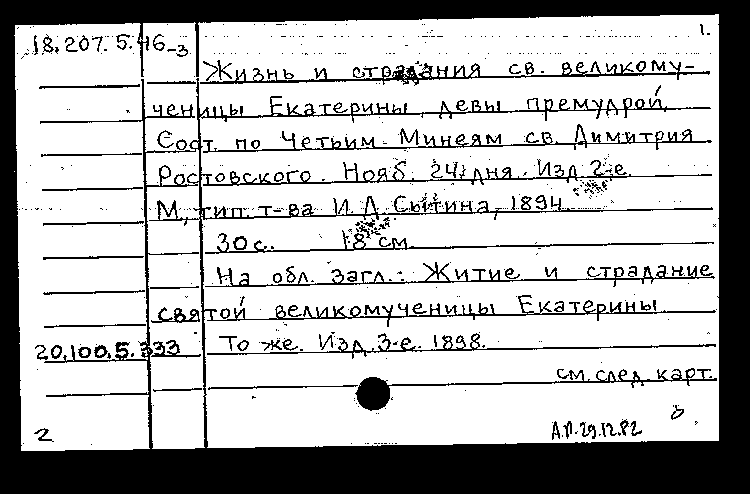 1.
18.207.5.46-3
Жизнь и страдания св. великому-
ченицы Екатерины, девы премудрой.
Сост. по Четьим-Минеям св. Димитрия
Ростовского. Нояб. 24 дня. Изд. 2-е.
М., тип. т-ва И.Д. Сытина, 1894.
30 с. 18 см.
На обл. загл.: Житие и страдание
святой великомученицы Екатерины
20.100.5.333 То же. Изд. 3-е. 1898.
см. след. карт.
2 А.П. 29.12.82